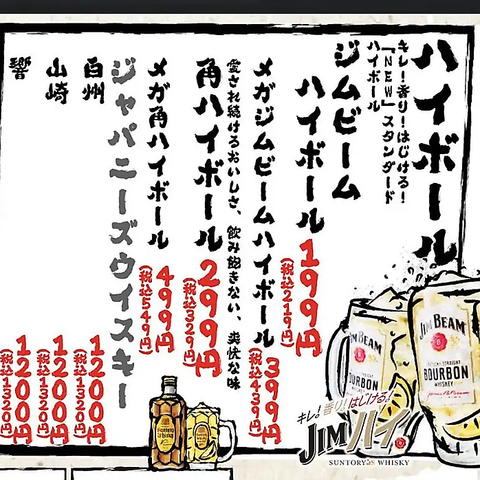 ハイボール
キレ！香り！はじける！
『NEW』スタンダード
ハイボール
ジムビーム
ハイボール
199円
(税込219円)
メガジムビームハイボール
399円
(税込439円)
愛され続けるおいしさ、飲み飽きない、爽快な味
角ハイボール
299円
(税込329円)
メガ角ハイボール
499円
(税込549円)
ジャパニーズウイスキー
白州
1200円
(税込1320円)
山崎
1200円
(税込1320円)
響
1200円
(税込1320円)
JIM BEAM
BOURBON
JIM BEAM
KENTUCKY STRAIGHT
BOURBON
WHISKEY
キレ！香り！はじける！
JIMハイ
SUNTORY WHISKY